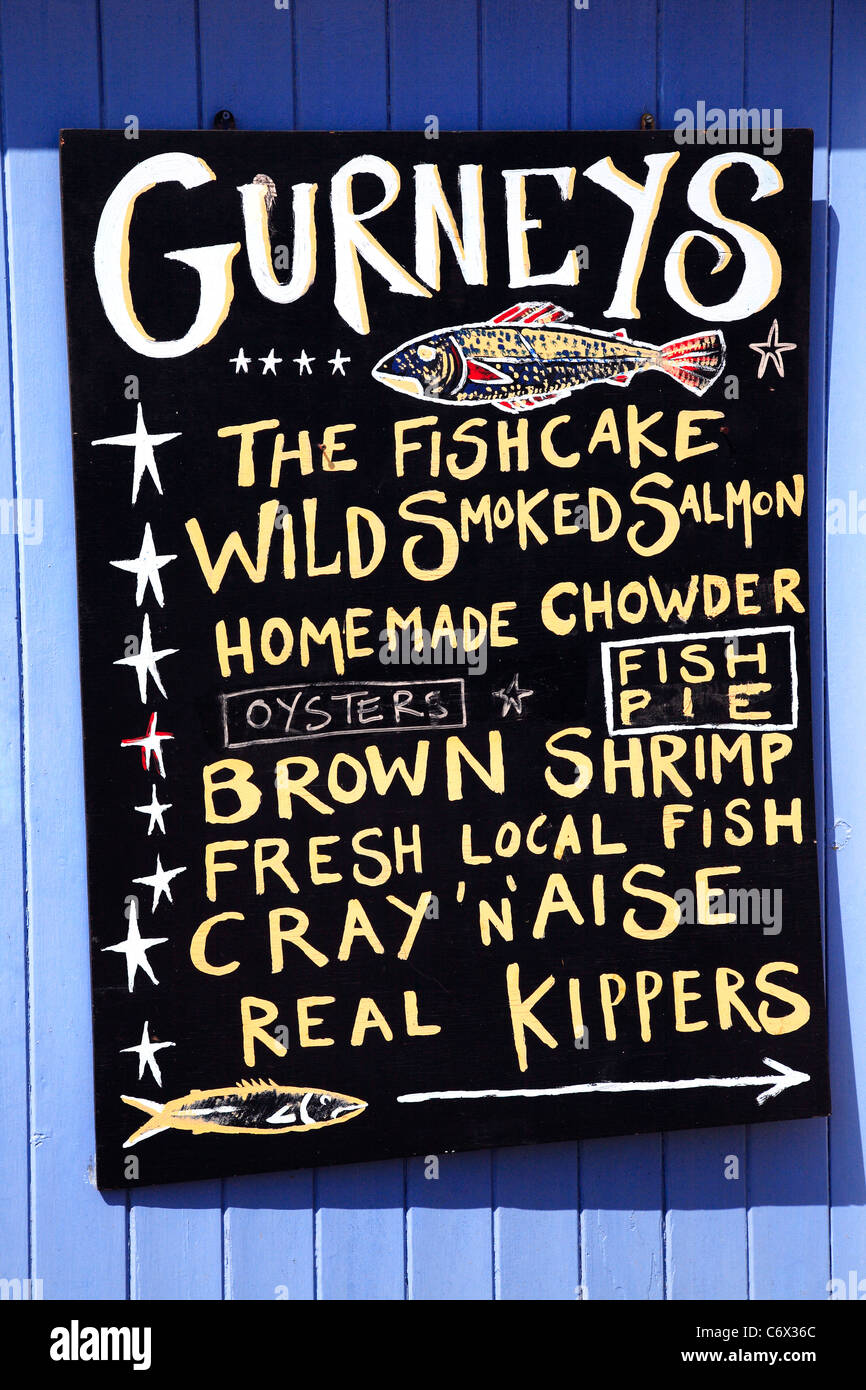 GURNEYS
THE FISHCAKE
WILD SMOKED SALMON
HOMEMADE CHOWDER
OYSTERS
FISH
PIE
BROWN SHRIMP
FRESH LOCAL FISH
CRAY 'N' AISE
REAL KIPPERS
alamy
Image ID: C6X36C
www.alamy.com